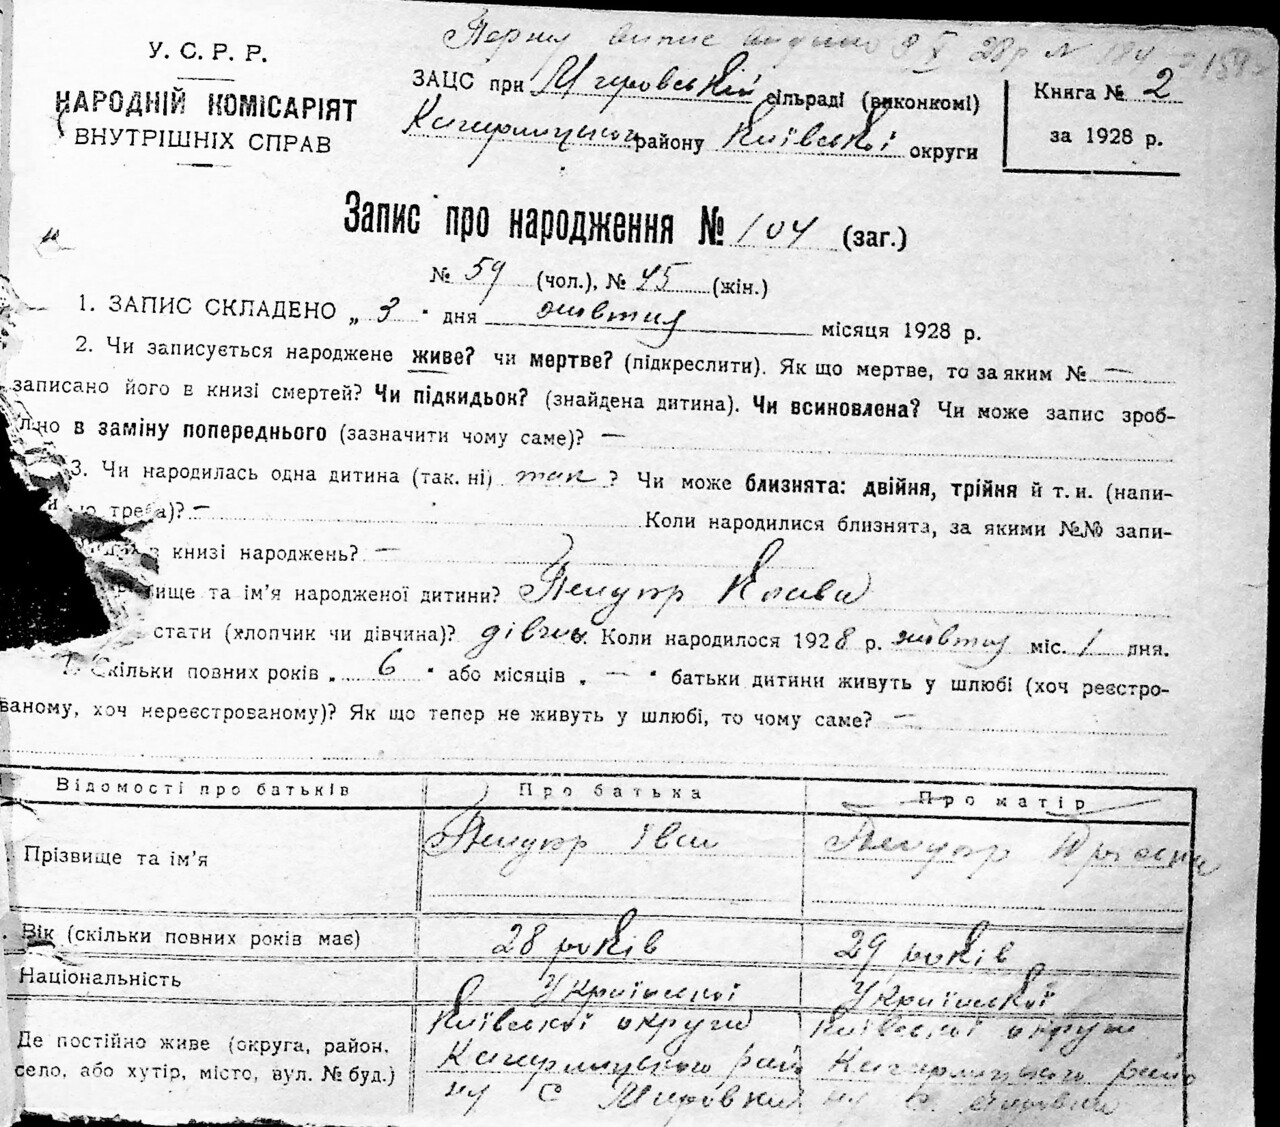 Перший випис видано 9 X 28р N 184
У. С. Р. Р.
НАРОДНІЙ КОМІСАРІЯТ
ВНУТРІШНІХ СПРАВ
ЗАЦС при Мировській сільраді (виконкомі)
Кагарлицького району Київської округи
Книга № 2
за 1928 р.
Запис про народження № 104 (заг.)
№ 59 (чол.), № 45 (жін.)
1. ЗАПИС СКЛАДЕНО „ 3 " дня жовтня місяця 1928 р.
2. Чи записується народжене живе? чи мертве? (підкреслити). Як що мертве, то за яким № —
записано його в книзі смертей? Чи підкидьок? (знайдена дитина). Чи всиновлена? Чи може запис зроб-
лено в заміну попереднього (зазначити чому саме)? —
3. Чи народилась одна дитина (так. ні) так ? Чи може близнята: двійня, трійня й т. и. (напи-
треба)? — Коли народилися близнята, за якими №№ запи-
з книзі народжень? —
ище та ім'я народженої дитини? Клава
стати (хлопчик чи дівчина)? дівчин. Коли народилося 1928 р. жовтня міс. 1 дня.
Скільки повних років „ 6 " або місяців „ — " батьки дитини живуть у шлюбі (хоч реєстро-
ваному, хоч нереєстрованому)? Як що тепер не живуть у шлюбі, то чому саме? —
Відомості про батьків Про батька Про матір
Прізвище та ім'я Іван
Вік (скільки повних років має) 28 років 29 років
Національність Української Української
Де постійно живе (округа, район, село, або хутір, місто, вул. № буд.)
Київської округи Київської округи
Кагарлицького райо Кагарлицького райо
ну с Мировки ну с. Мировки